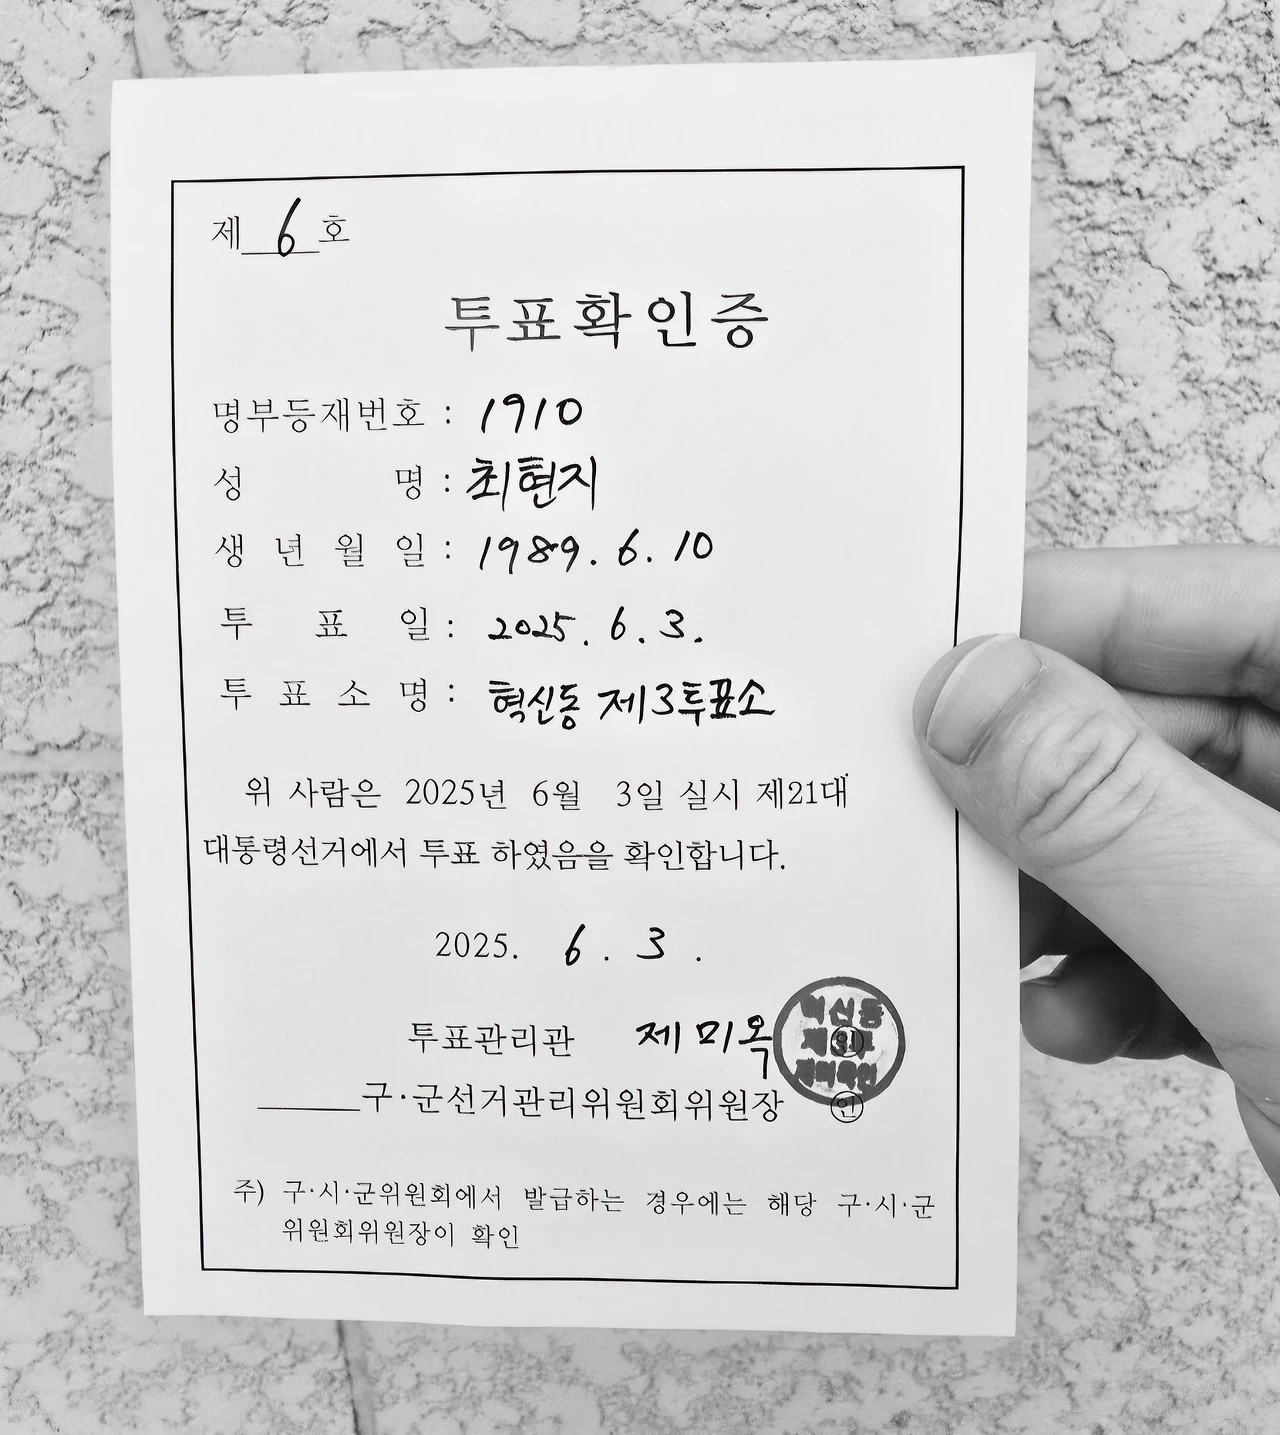 제 6 호
투표확인증
명부등재번호 : 1910
성 명 : 최현지
생 년 월 일 : 1989. 6. 10
투 표 일 : 2025. 6. 3.
투 표 소 명 : 혁신동 제3투표소
위 사람은 2025년 6월 3일 실시 제21대
대통령선거에서 투표 하였음을 확인합니다.
2025. 6. 3.
투표관리관 제미옥
구·군선거관리위원회위원장 인
주) 구·시·군위원회에서 발급하는 경우에는 해당 구·시·군
위원회위원장이 확인